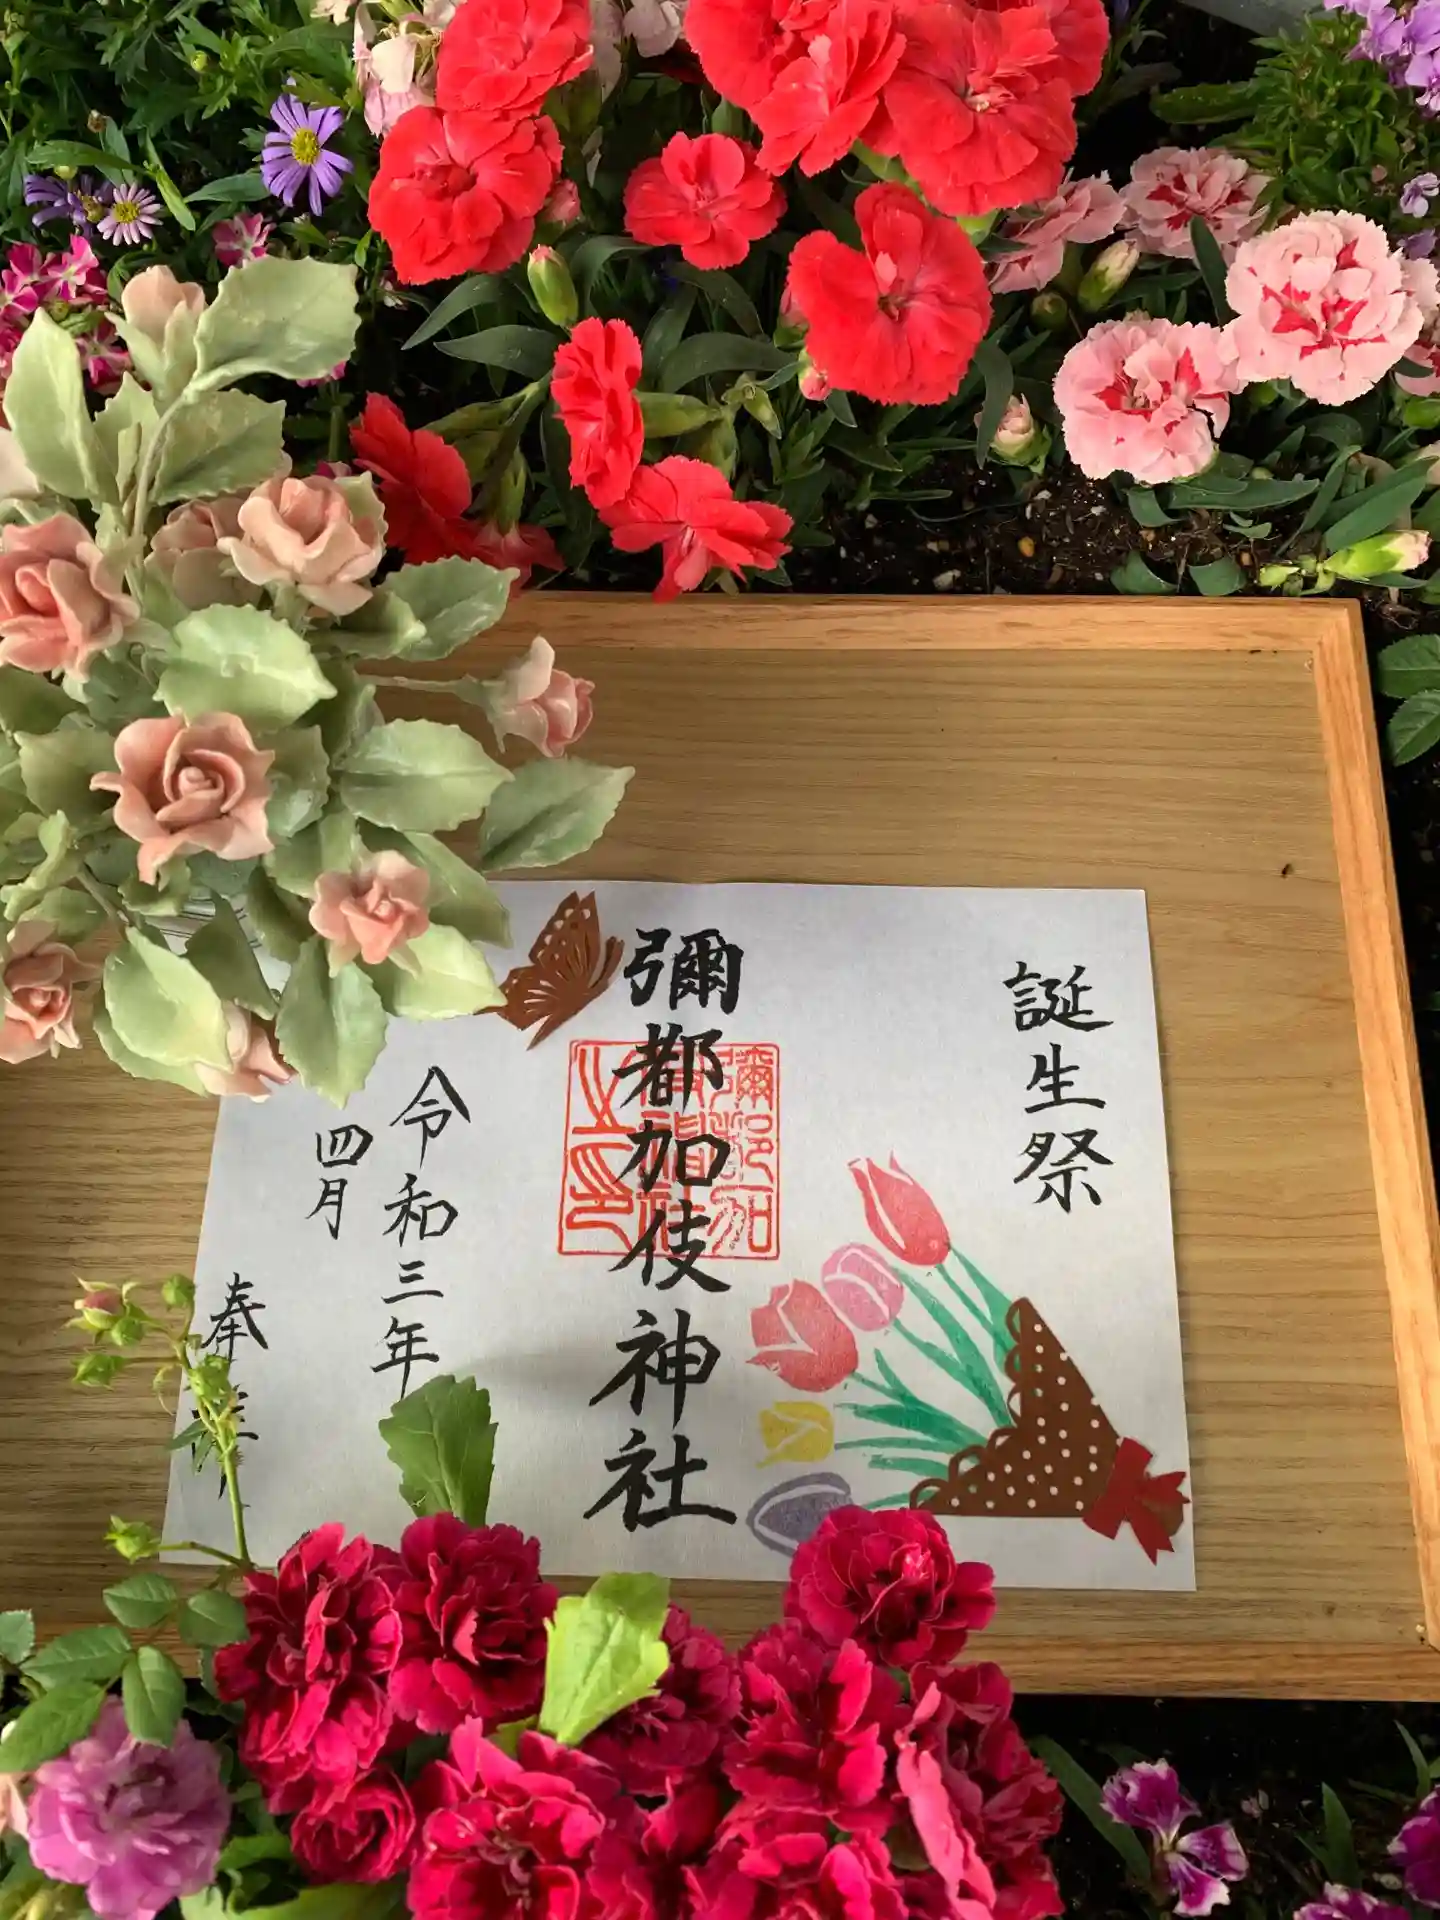 誕生祭
彌都加伎神社
令和三年
四月
奉拝